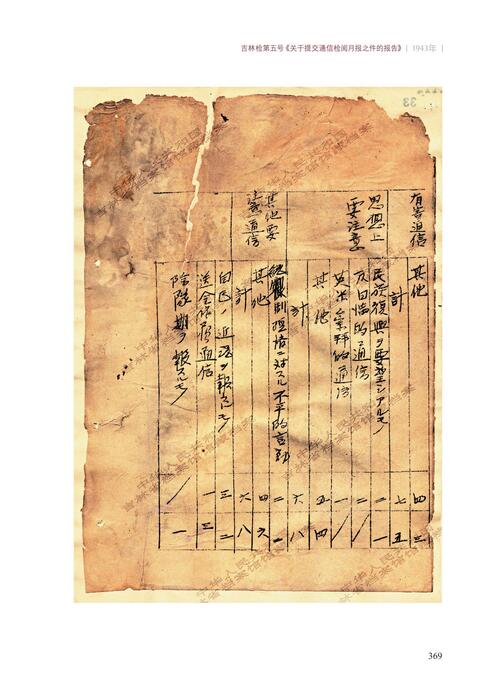 吉林检第五号《关于提交通信检阅月报之件的报告》 | 1943年 |
33
有害通信
其他 四 三
計 七 五
思想上要注意
民族復興ヲ要望シアルモノ 二 一
反日的ノ通信 二 /
英米崇拝的通信 一 /
其他 五 四
計 六 八
其他要注意通信
統制強情ニ対スル不平的言動 二 一
其他 四 六
計 六 八
自己ノ近況ヲ報スルモノ 三 二
送金依頼通信 一 三
除隊期ヲ報スルモノ / 一
369